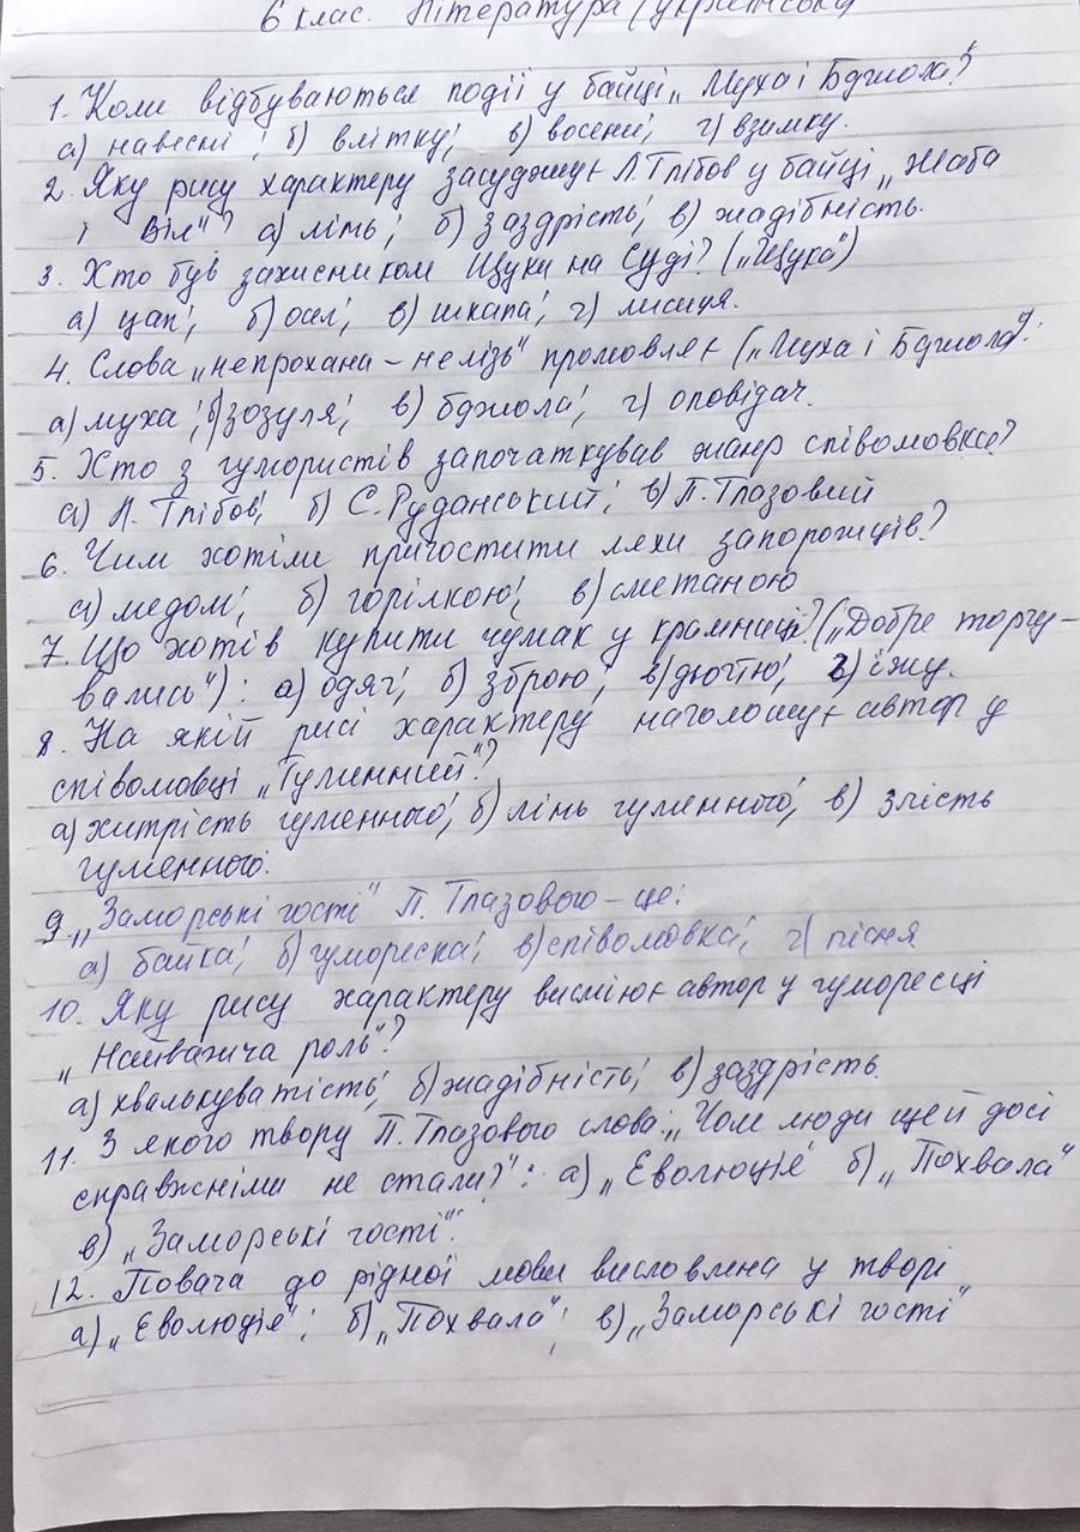 6 клас. Література (українська)
1. Коли відбуваються події у байці „Муха і Бджола"?
а) навесні; б) влітку; в) восени; г) взимку.
2. Яку рису характеру засуджує Л. Глібов у байці „Жаба
і Віл"? а) лінь; б) заздрість; в) жадібність.
3. Хто був захисником Щуки на Суді? („Щука")
а) цап; б) осел; в) шкапа; г) лисиця.
4. Слова „непрохана – не лізь" промовляє („Муха і Бджола"):
а) муха; б) зозуля; в) бджола; г) оповідач.
5. Хто з гумористів започаткував жанр співомовки?
а) Л. Глібов; б) С. Руданський; в) П. Глазовий
6. Чим хотіли пригостити ляхи запорожців?
а) медом; б) горілкою; в) сметаною
7. Що хотів купити чумак у крамниці? („Добре торгу-
вались"): а) одяг; б) зброю; в) дьогтю; г) їжу.
8. На якій рисі характеру наголошує автор у
співомовці „Гуменний"?
а) хитрість гуменного; б) лінь гуменного; в) злість
гуменного.
9. „Заморські гості" П. Глазового – це:
а) байка; б) гумореска; в) співомовка; г) пісня
10. Яку рису характеру висміює автор у гуморесці
„Найважча роль"?
а) хвалькуватість; б) жадібність; в) заздрість.
11. З якого твору П. Глазового слова: „Чом люди ще й досі
справжніми не стали?": а) „Еволюція" б) „Похвала"
в) „Заморські гості".
12. Повага до рідної мови висловлена у творі
а) „Еволюція"; б) „Похвала"; в) „Заморські гості"